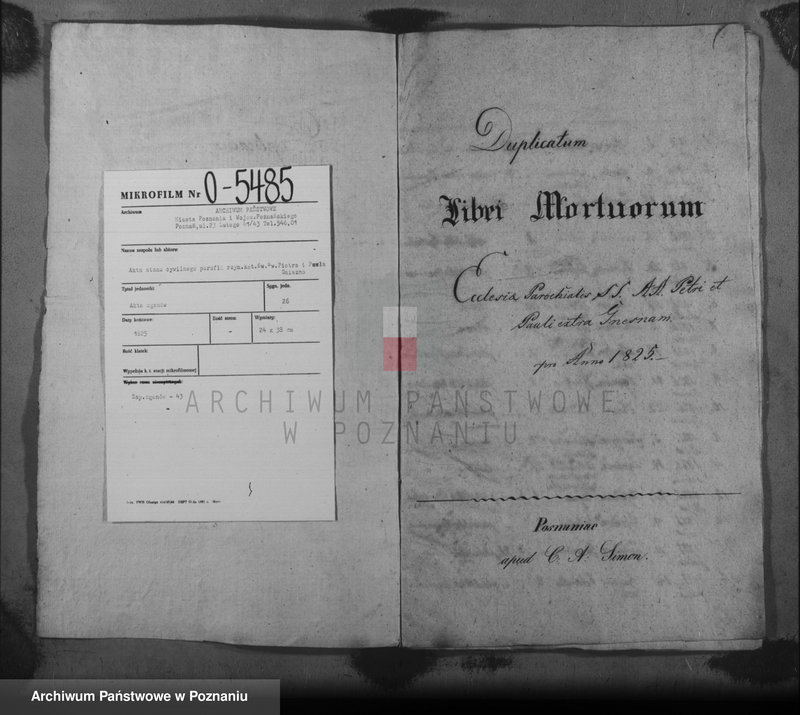 MIKROFILM Nr O-5485
Archiwum
ARCHIWUM PAŃSTWOWE
Miasta Poznania i Wojew. Poznańskiego
Poznań, ul. 23 Lutego 41/43 Tel. 546,01
Nazwa zespołu lub zbioru
Akta stanu cywilnego parafii rzym.kat. św.św. Piotra i Pawła
Gniezno
Tytuł jednostki
Sygn. jedn.
Akta zgonów
26
Daty końcowe:
Ilość stron:
Wymiary:
1825
-
24 x 38 cm
Ilość klatek:
Wypełnia k. t. stacji mikrofilmowej
Dup. zgonów - 43
Duplicatum
Libri Mortuorum
Eclesiæ Parochiales S.S. A.A. Petri et
Pauli extra Gnesnam
pro Anno 1825.
Posnaniae
apud C. A. Simon.
ARCHIWUM PAŃSTWOWE
W POZNANIU
Archiwum Państwowe w Poznaniu